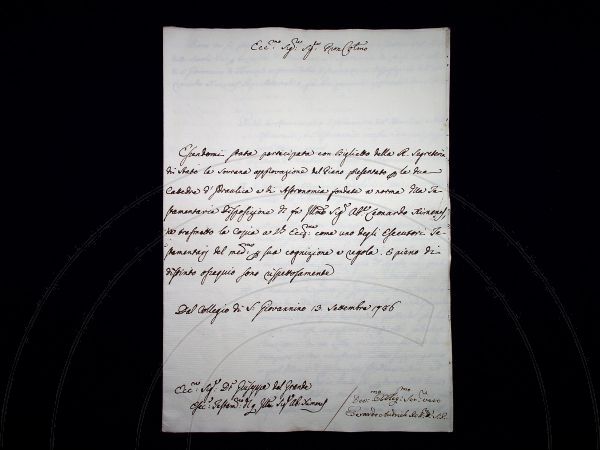 Ecc.mo Sig.re Sig.re Pron Col.mo
Essendomi stata partecipata con Biglietto della R. Segreteria
di Stato la Sovrana approvazione del Piano presentato p le due
Catedre d'Idraulica e di Astronomia fondate a norma della Te-
stamentaria disposizione di fu Ill.mo Sig.r Ab.e Leonardo Ximenes,
ne trasmetto la Copia a V.S. Ecc.ma come uno degli Esecutori Te-
stamentarj del med.mo p sua cognizione e regola. E pieno di
distinto ossequio sono rispettosamente
Dal Collegio di S. Giovannino 13 Settembre 1786
Ecc.mo Sig.r D.r Giuseppe del Grande
Esec.r Testam.rio dell Ill.mo Sig.r Ab. Ximenes
Dev.mo Obblig.mo Ser.re vero